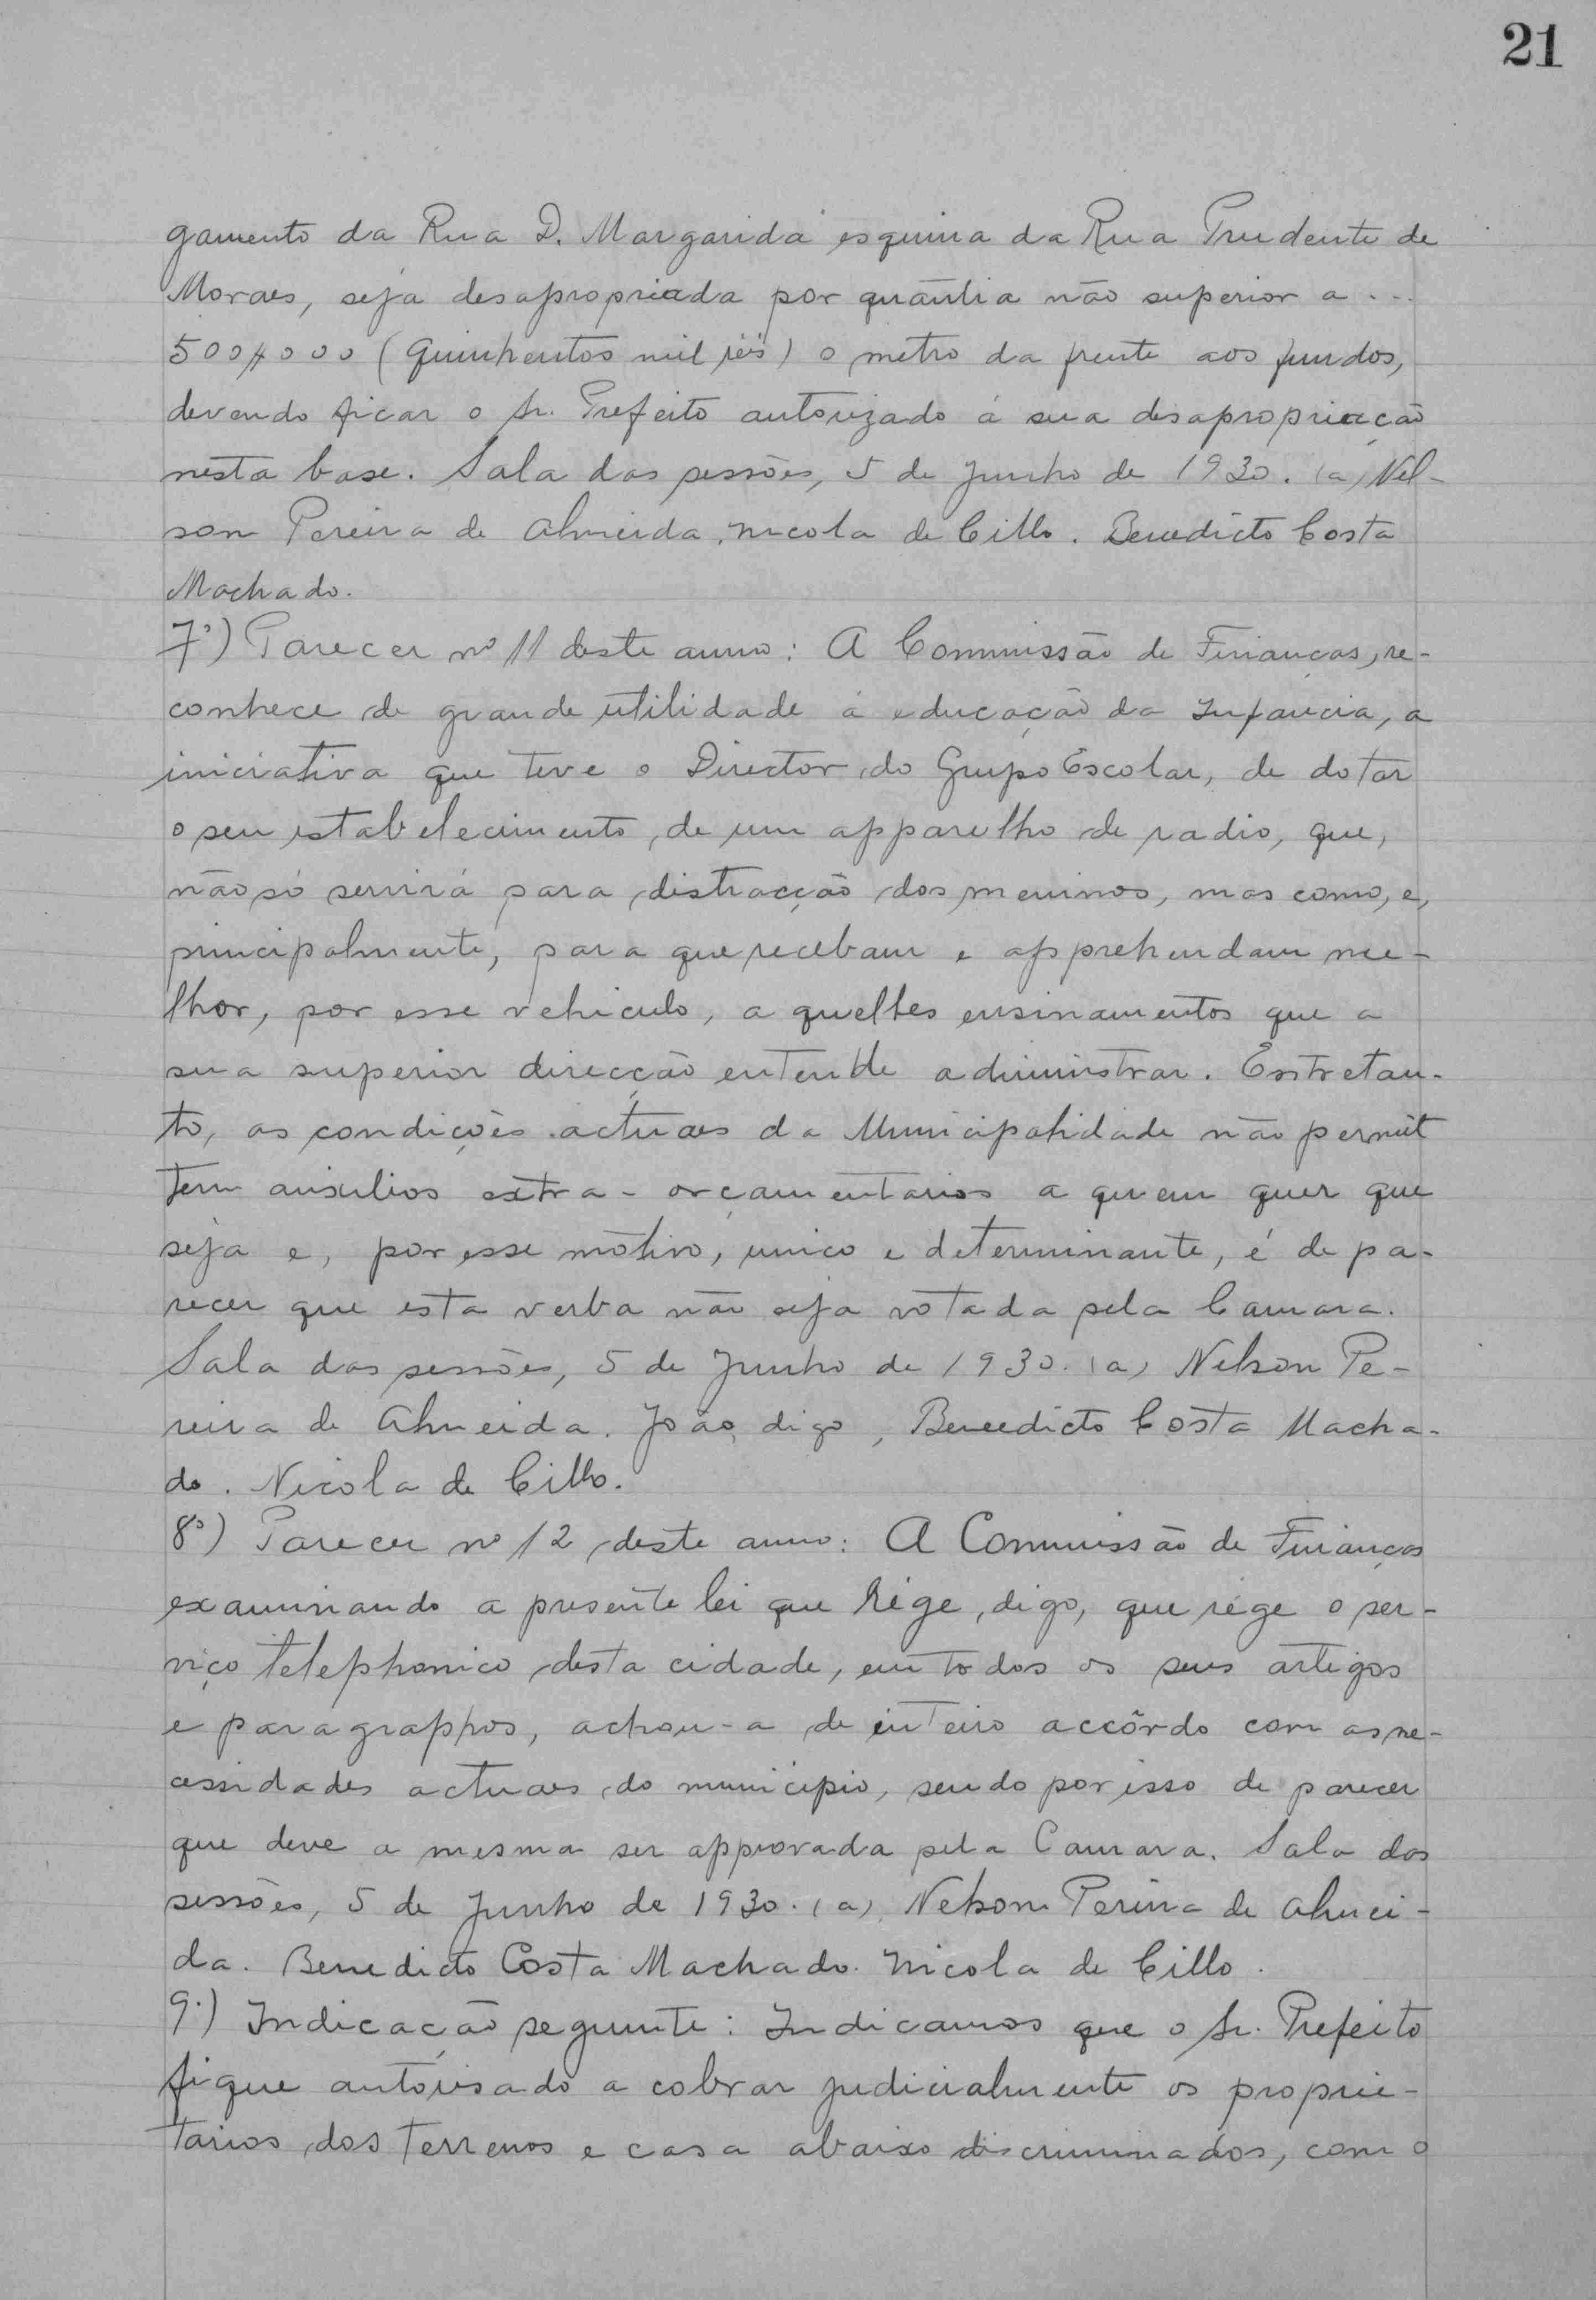 21
gamento da Rua D. Margarida esquina da Rua Prudente de
Moraes, seja desapropriada por quantia não superior a ...
500$000 (quinhentos mil réis) o metro da frente aos fundos,
devendo ficar o Sr. Prefeito autorizado á sua desapropriação
nesta base. Sala das sessões, 5 de Junho de 1930. (a) Nel-
son Pereira de Almeida, Nicola de Cillo. Benedicto Costa
Machado.
7º) Parecer nº 11 deste anno: A Commissão de Finanças, re-
conhece de grande utilidade á educação da Infancia, a
iniciativa que teve o Director do Grupo Escolar, de dotar
o seu estabelecimento, de um apparelho de radio, que,
não só servirá para distracção dos meninos, mas como, e,
principalmente, para que recebam e apprehendam me-
lhor, por esse vehiculo, aquelles ensinamentos que a
sua superior direcção entende administrar. Entretan-
to, as condições actuaes da Municipalidade não permit
tem auxilios extra-orçamentarios a quem quer que
seja e, por esse motivo, unico e determinante, é de pa-
recer que esta verba não seja votada pela Camara.
Sala das sessões, 5 de Junho de 1930. (a) Nelson Pe-
reira de Almeida. João, digo, Benedicto Costa Macha-
do. Nicola de Cillo.
8º) Parecer nº 12 deste anno: A Commissão de Finanças
examinando a presente lei que rége, digo, que rége o ser-
viço telephonico desta cidade, em todos os seus artigos
e paragraphos, achou-a de inteiro accôrdo com as ne-
cessidades actuaes do municipio, sendo por isso de parecer
que deve a mesma ser approvada pela Camara. Sala das
sessões, 5 de Junho de 1930. (a) Nelson Pereira de Almei-
da. Benedicto Costa Machado. Nicola de Cillo.
9º) Indicação seguinte: Indicamos que o Sr. Prefeito
fique autorisado a cobrar judicialmente os proprie-
tarios dos terrenos e casa abaixo discriminados, com o